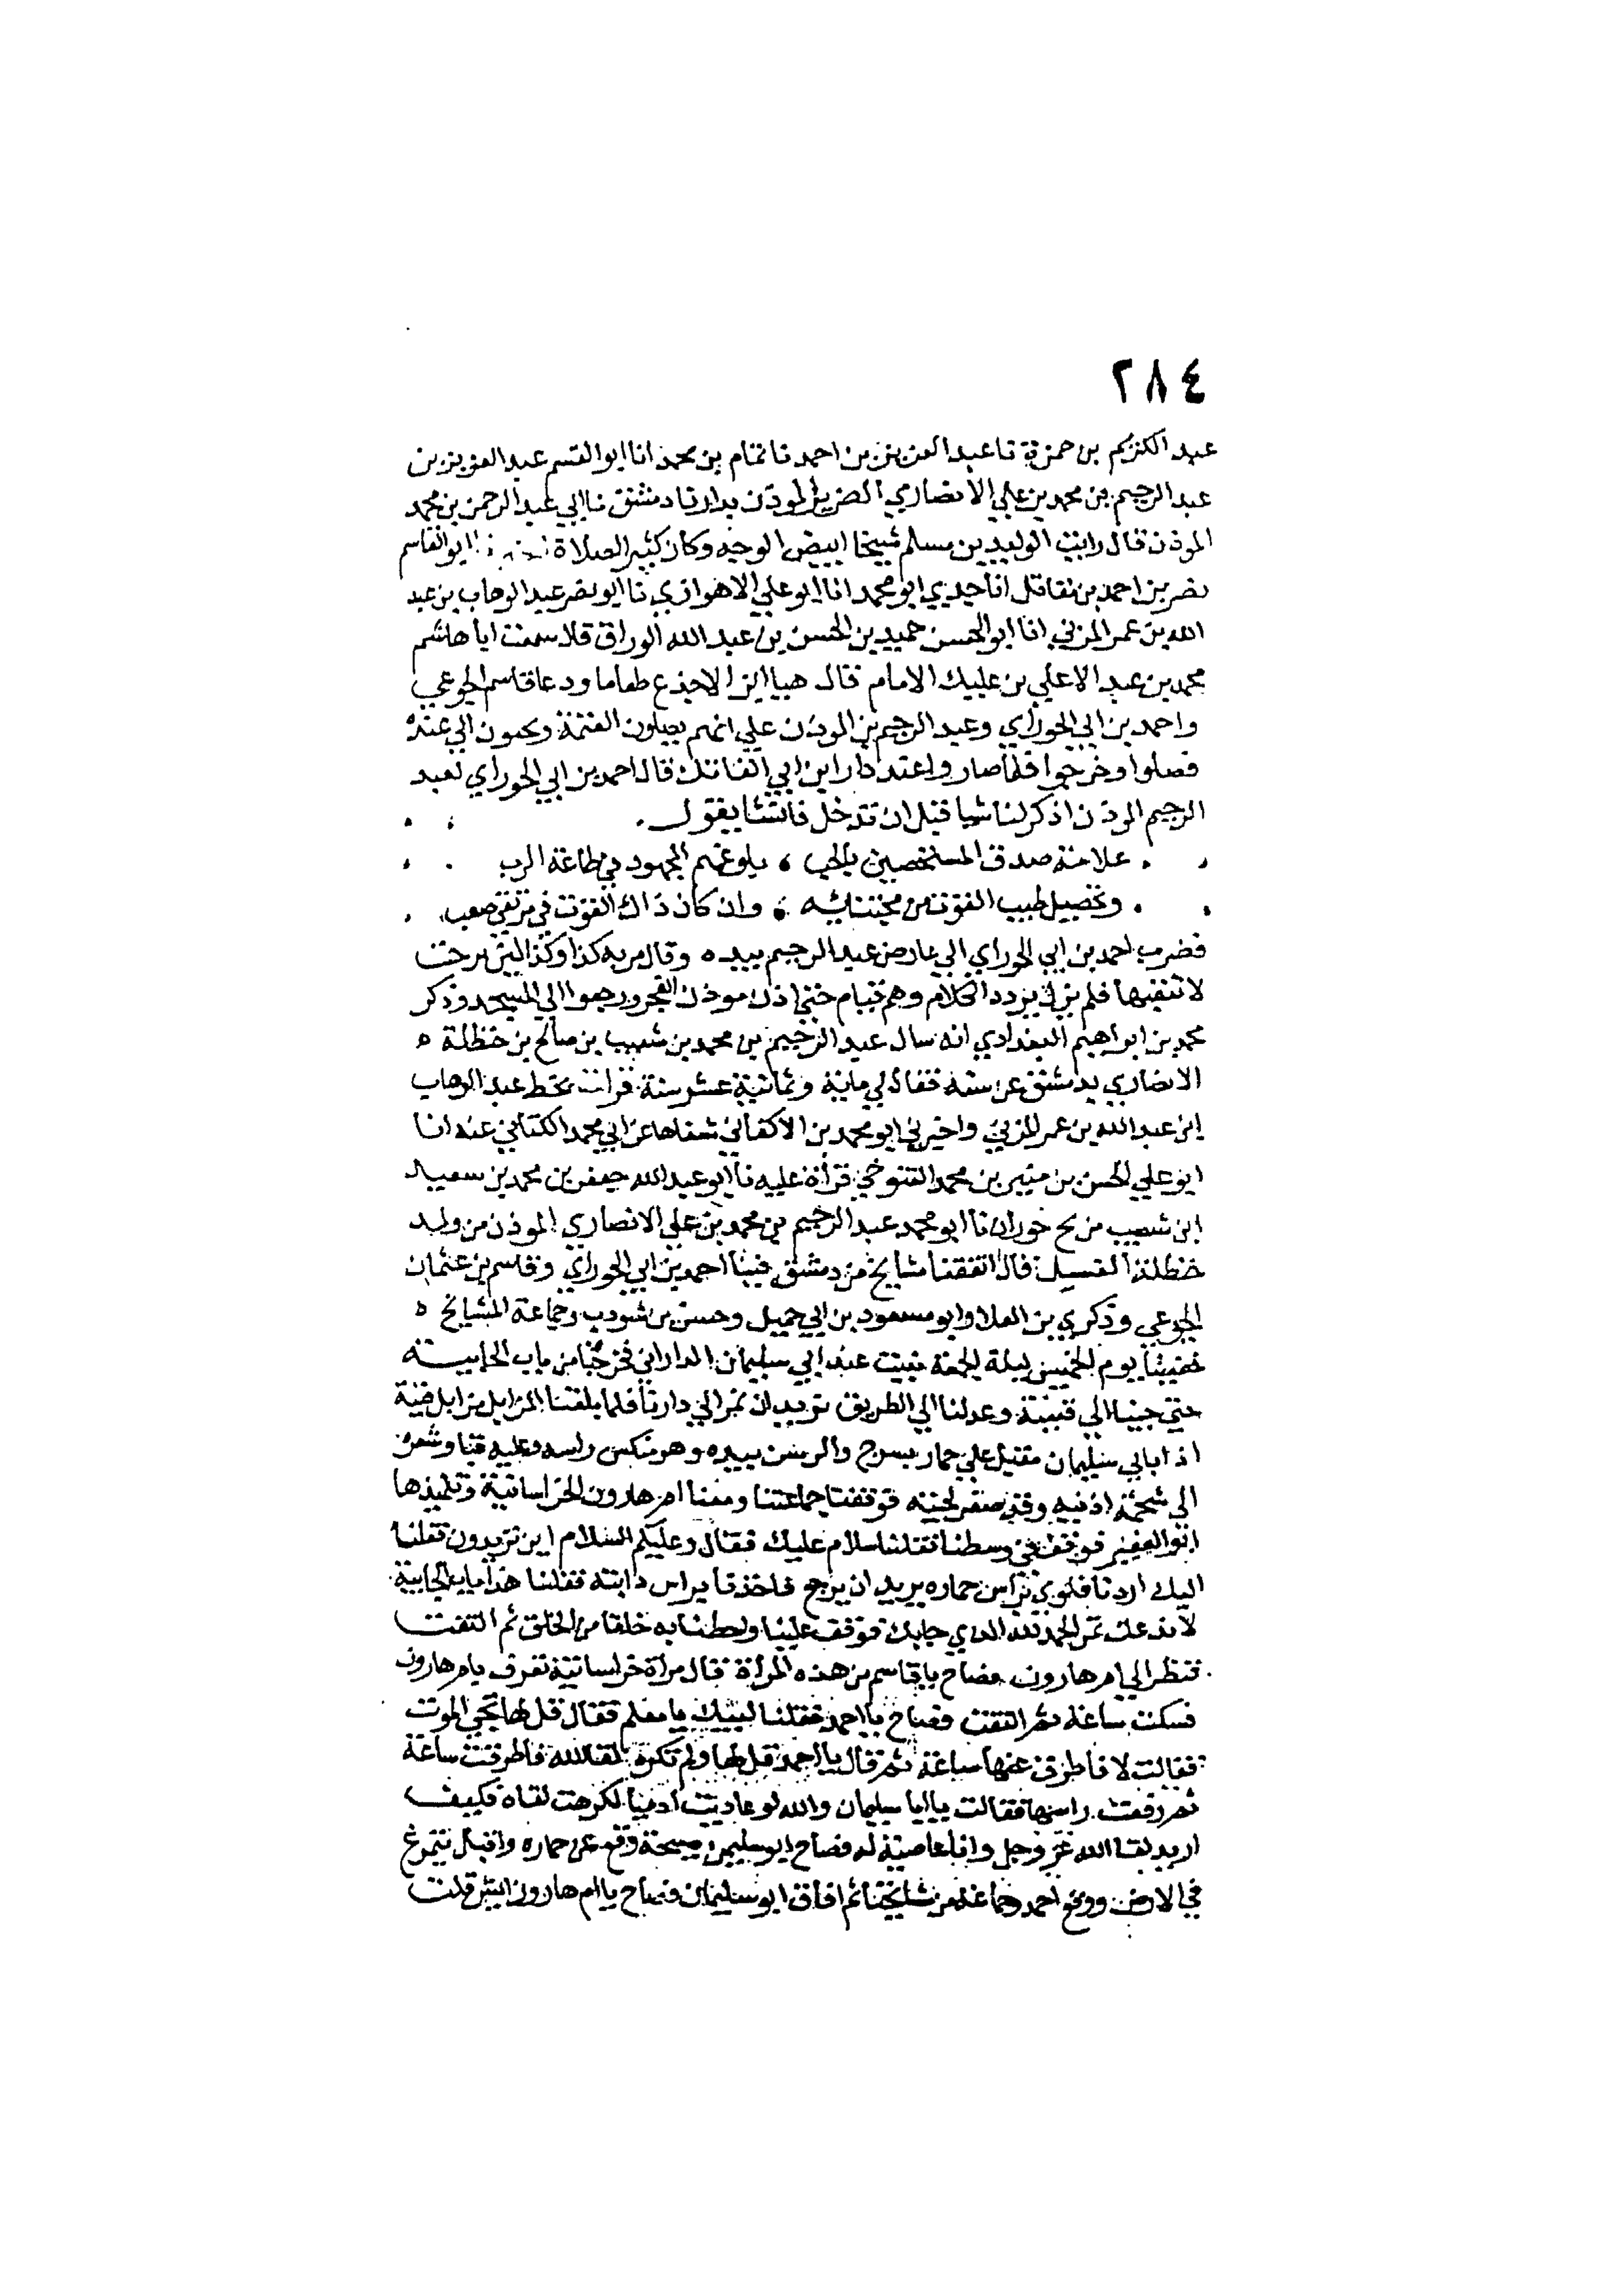 ٢٨٤
عبد الكريم بن حمزة نا عبد العزيز بن احمد نا تمام بن محمد انا ابو القسم عبد العزيز بن
عبد الرحيم بن محمد بن علي الانصاري الضرير الموذن بدارنا دمشق نا ابي عبد الرحمن بن محمد
الموذن قال رايت الوليد بن مسلم شيخا ابيض الوجه وكان كثير الصلاة ابو القاسم
نصر بن احمد بن مقاتل انا جدي ابو محمد انا ابو علي الاهوازي نا ابو نصر عبد الوهاب بن عبد
الله بن عمر المزني انا ابو الحسن حميد بن الحسن بن عبد الله الوراق قال سمعت ابا هاشم
محمد بن عبد الاعلي بن عليك الامام قال هيا ابن الاجذع طعاما ودعا قاسم الجوعي
واحمد بن ابي الحوراي وعبد الرحيم بن الموذن علي انهم يصلون العتمة ويجون الي عنده
فصلوا وخرجوا فلما صاروا عند دار ابن ابي الفاتك قال احمد بن ابي الحوراي لعبد
الرحيم الموذن اذكر لنا شيا قبل ان ندخل فانشا يقول
علامة صدق المستخصين بالحب بلوغهم المجهود في طاعة الرب
وتحصيل طيب القوت من مجتنائه وان كان ذاك القوت في مرتقي صعب
فضرب احمد بن ابي الحوراي الي عارض عبد الرحيم بيده وقال مر به كذا وكذا ليش برحت
لا تتفيها فلم يزل يردد الكلام وهم قيام حتي اذن موذن الفجر ورجعوا الي المسجد وذكر
محمد بن ابراهيم البغدادي انه سال عبد الرحيم بن محمد بن شعيب بن صالح بن حنظلة
الانصاري بدمشق عن سنه فقال لي ماية وثمانية عشر سنة قرات بخط عبد الوهاب
ابن عبد الله بن عمر المزني واخبرني ابو محمد بن الاكفاني شفاها عن ابي محمد الكتاني عنه انا
ابو علي الحسن بن منير بن محمد التنوخي قراة عليه نا ابو عبد الله جعفر بن محمد بن سعيد
ابن شعيب بن حوران نا ابو محمد عبد الرحيم بن محمد بن علي الانصاري الموذن من ولد
حنظلة الغسيل قال اتفقنا مشايخ من دمشق فينا احمد بن ابي الحوراي وقاسم بن عثمان
الجوعي وزكري بن العلا وابو مسعود بن ابي جميل وحسن بن شوذب وجماعة المشايخ
فمضينا يوم الخميس ليلة الجمعة نبيت عند ابي سليمان الداراني فخرجنا من باب الجابية
حتي جينا الي قينية وعدلنا الي الطريق نريد ان نمر الي داريا فلما بلغنا المزابل مزابل قينية
اذا بابي سليمان مقبل علي حمار بسرج والرسن بيده وهو منكس راسه وعليه قبا وشعره
الي شحمة اذنيه وقد صفر لحيته فوقفنا جماعتنا ومعنا ام هارون الخراسانية وتلميذها
ابو العفير فوقف في وسطنا فقلنا سلام عليك فقال وعليكم السلام اين تريدون فقلنا
اليك اردنا فلوي براس حماره يريد ان يرجع فاخذنا براس دابته فقلنا هذا باب الجابية
لا ندعك تمر الحمد لله الذي جابك فوقف علينا ولحظنا به خلقا من الخلق ثم التفت
فنظر الي ام هارون فصاح يا قاسم من هذه المراة فقال مراة خراسانية تعرف بام هارون
فسكت ساعة ثم التفت فصاح يا احمد فقلنا لبيك يا معلم فقال قل لها تحبي الموت
فقالت لا فاطرق عنها ساعة ثم قال يا احمد قل لها ولم تكره لقا الله فاطرقت ساعة
ثم رفعت راسها فقالت يا ابا سليمان والله لو عاديت ادميا لكرهت لقاه فكيف
اريد لقا الله عز وجل وانا عاصية له فصاح ابو سليمن صيحة وقع عن حماره واقبل يتمرغ
في الارض ووقع احمد وجماعة من مشايخنا ثم افاق ابو سليمان فصاح يا ام هارون ايش قلت